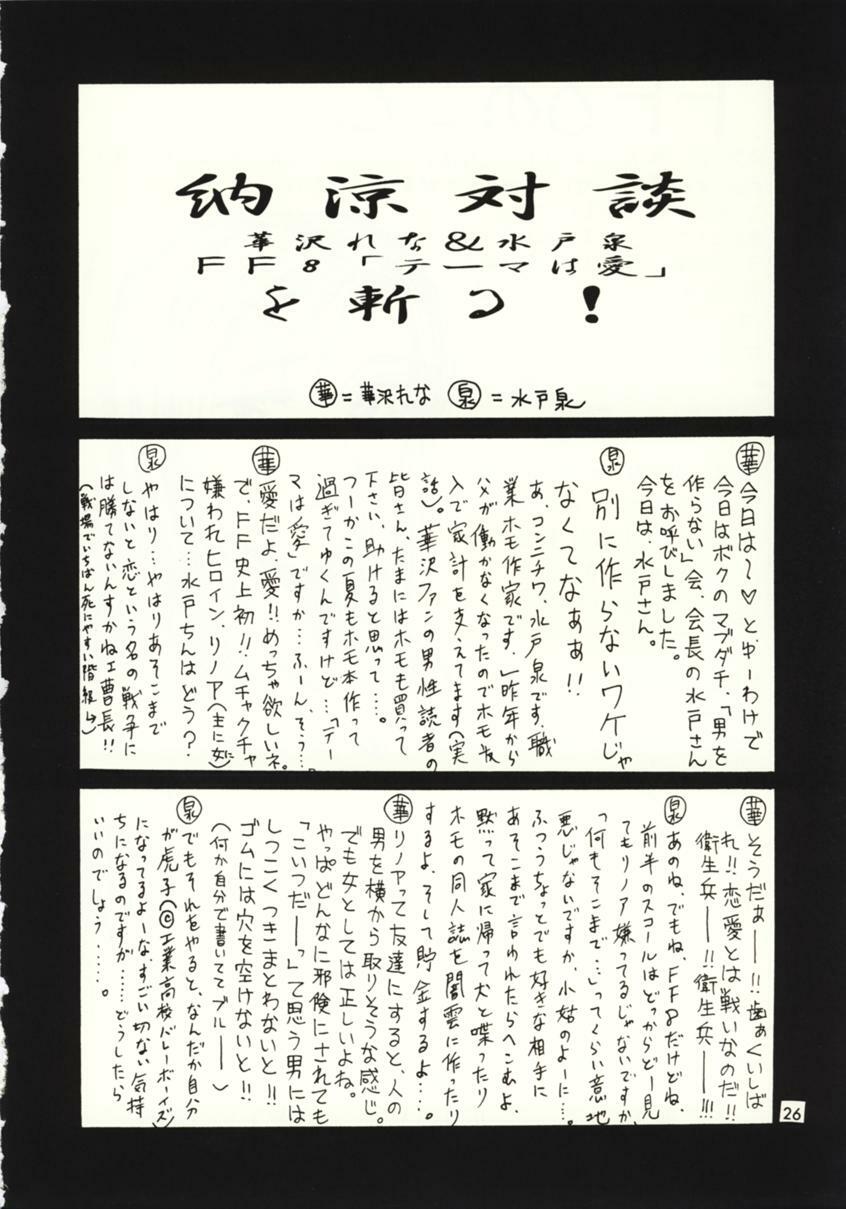 納涼対談
華沢れな&水戸泉
FF8「テーマは愛」
を斬る!
華=華沢れな 泉=水戸泉
華 今日は〜♡と、ゆーわけで
今日はボクのマブダチ、「男を
作らない」会、会長の水戸さん
をお呼びしました。
今日は、水戸さん。
泉 別に作らないワケじゃ
なくてなぁぁ!!
あ、コンニチワ、水戸泉です、職
業ホモ作家です、昨年から
父が働かなくなったのでホモ収
入で家計を支えてます(実
話)。華沢ファンの男性読者の
皆さん、たまにはホモも買って
下さい、助けると思って…。
つーかこの夏もホモ本作って
過ぎてゆくんですけど…「テー
マは愛」ですか…ふーん、そう…。
華 愛だよ、愛!!めっちゃ欲しいネ。
で、FF史上初!!ムチャクチャ
嫌われヒロイン、リノア(主に女に)
について…水戸ちんはどう?
泉 やはり…やはりあそこまで
しないと恋という名の戦争に
は勝てないんすかねェ曹長!!
(戦場でいちばん死にやすい階級↑)
華 そうだぁー!!歯ぁくいしば
れ!!恋愛とは戦いなのだ!!
衛生兵ー!!衛生兵ー!!!
泉 あのね、でもね、FF8だけどね、
前半のスコールはどっからどー見
てもリノア嫌ってるじゃないですか、
「何もそこまで…」ってくらい意地
悪じゃないですか、小姑のよーに…。
ふつうちょっとでも好きな相手に
あそこまで言われたらへこむよ、
黙って家に帰って犬と喋ったり
ホモの同人誌を闇雲に作ったり
するよ、そして貯金するよ…。
華 リノアって友達にすると、人の
男を横から取りそうな感じ。
でも女としては正しいよね。
やっぱどんなに邪険にされても
「こいつだーっ」て思う男には
しつこくつきまとわないと!!
ゴムには穴を空けないと!!
(何か自分で書いててブルー)
泉 でもそれをやると、なんだか自分
が虎子(©工業高校バレーボーイズ)
になってるよーな、すごい切ない気持
ちになるのですが……どうしたら
いいのでしょう……。
26